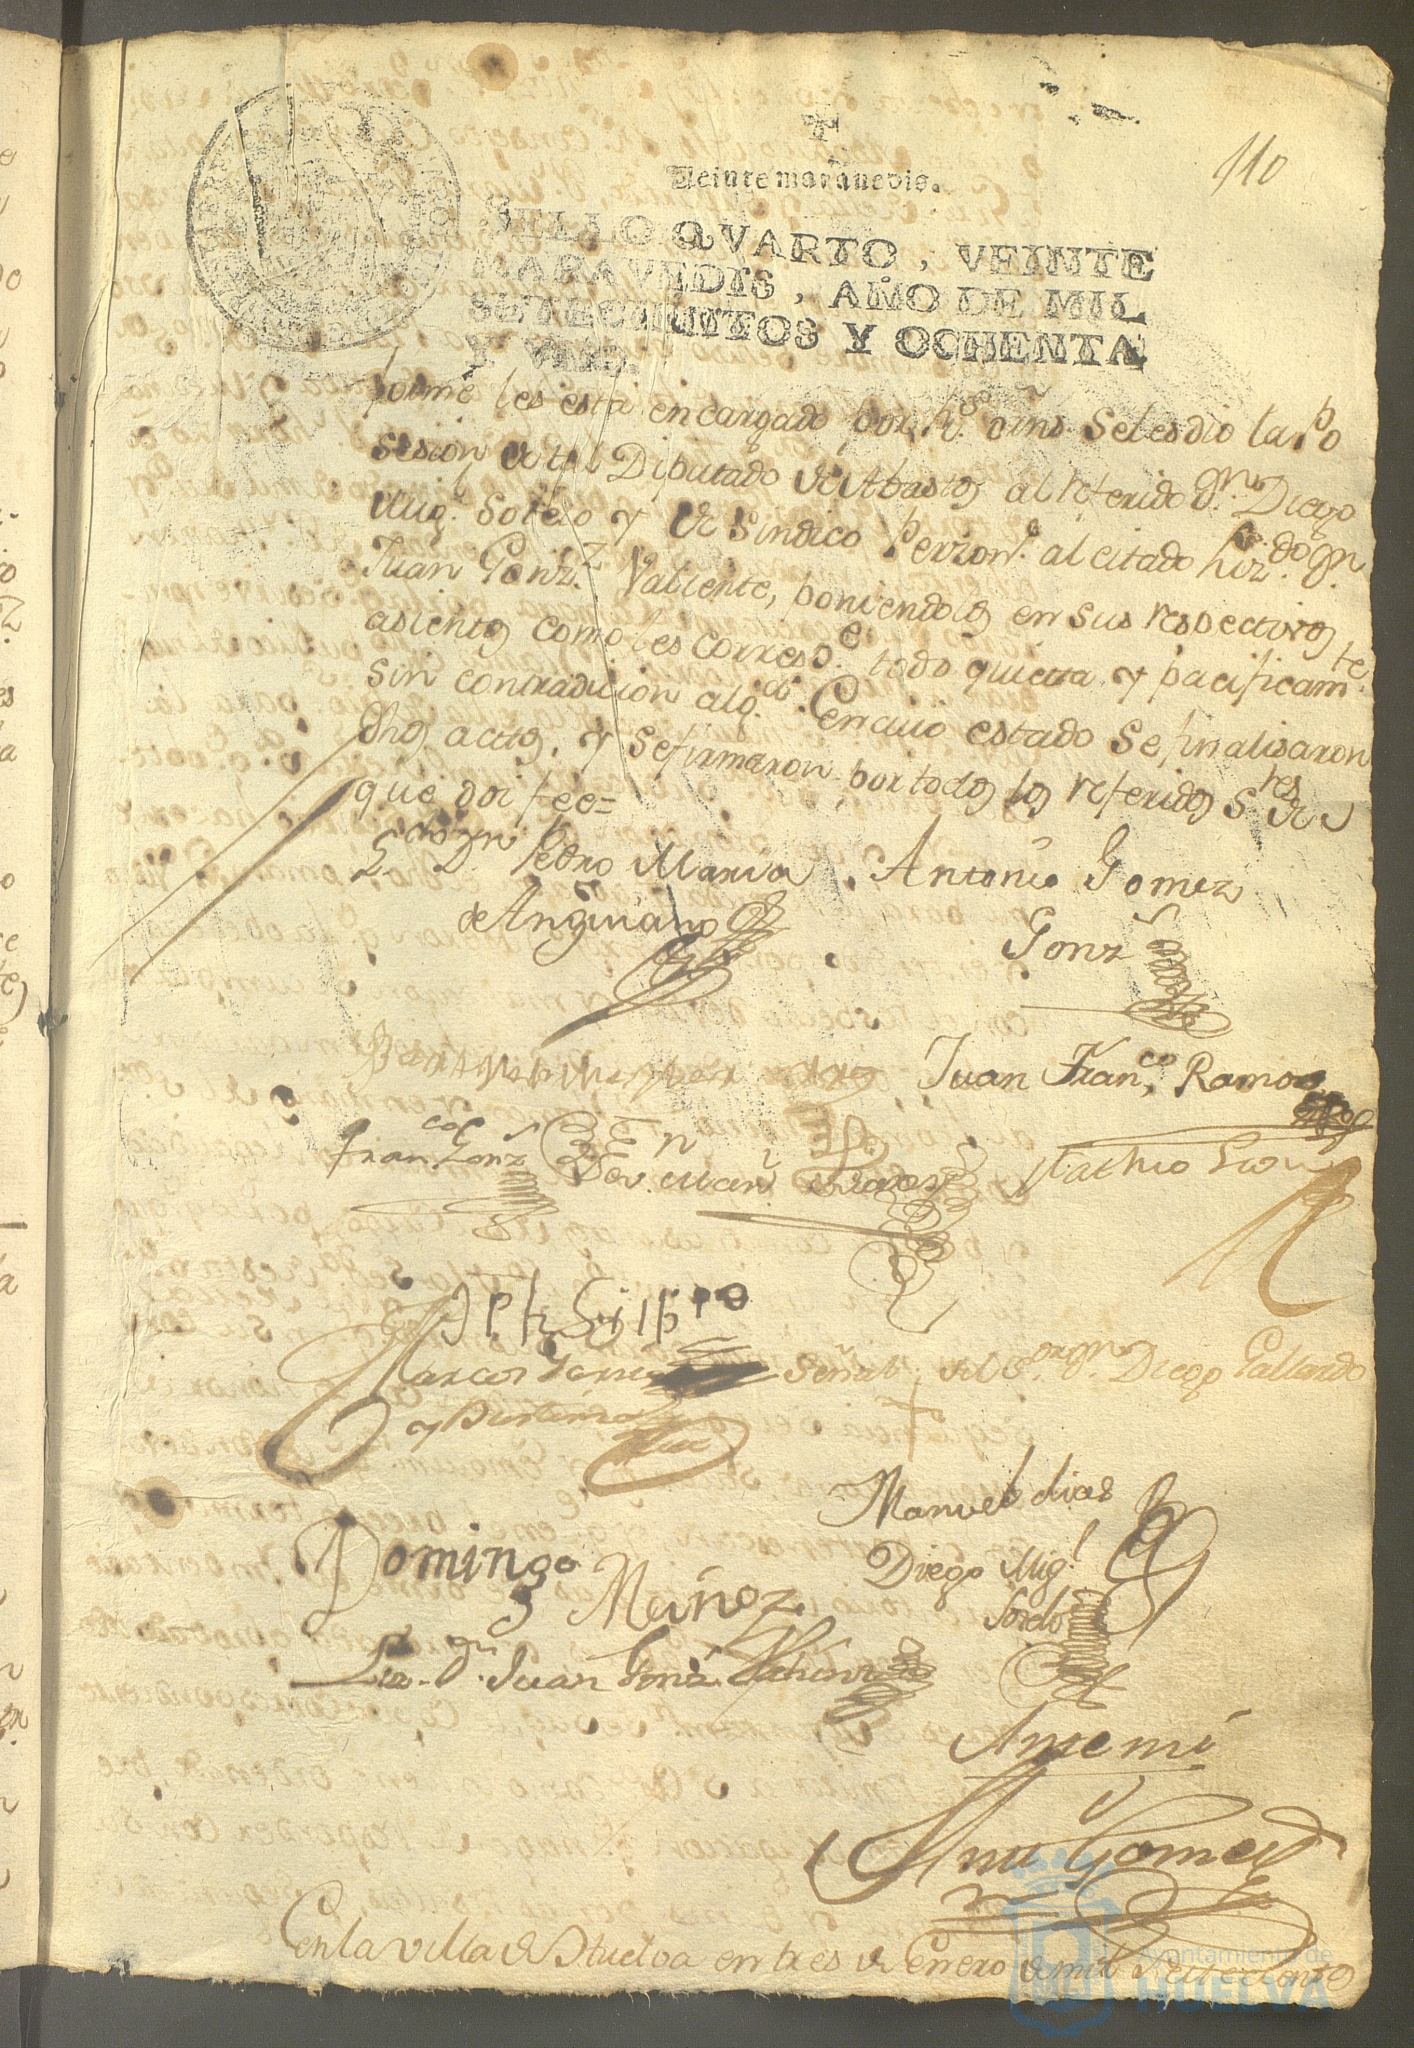 110
Veinte maravedis.
SELLO QVARTO, VEINTE
MARAVEDIS, AÑO DE MIL
SETECIENTOS Y OCHENTA
Y VNO.
forme les está encargado por hõ. Seles dio la Po
sesion de tal Diputado de Abastos al referido Dn. Diego
Migl. Sordo y de Sindico Perzon.e al citado Lizdo. Dn
Juan Gonz.z Valiente, poniendolos en sus respectivos
asientos como les corresp.e todo quieta y pacificamte.
sin contradicion alg.a En cuio estado se finalisaron
dhos actos, y se firmaron por todos los referidos S.res de
que doi fee=
L.do Dn Pedro Maria
de Anguiano
Antonio Gomez
Gonz
Juan Fran.co Ramos
Fran.co Gonz
Man.l Suarez
Marcos
y Bustamante
Señal del Dn. Diego Gallardo
Manuel dias
Domingo
Muñoz
Diego Mig.l
Sordo
Liz. Dn. Juan Gonz.
Ante mi
Gomez
En la villa de Huelva en tres de Enero de mil Setecientos
Ayuntamiento de
HUELVA